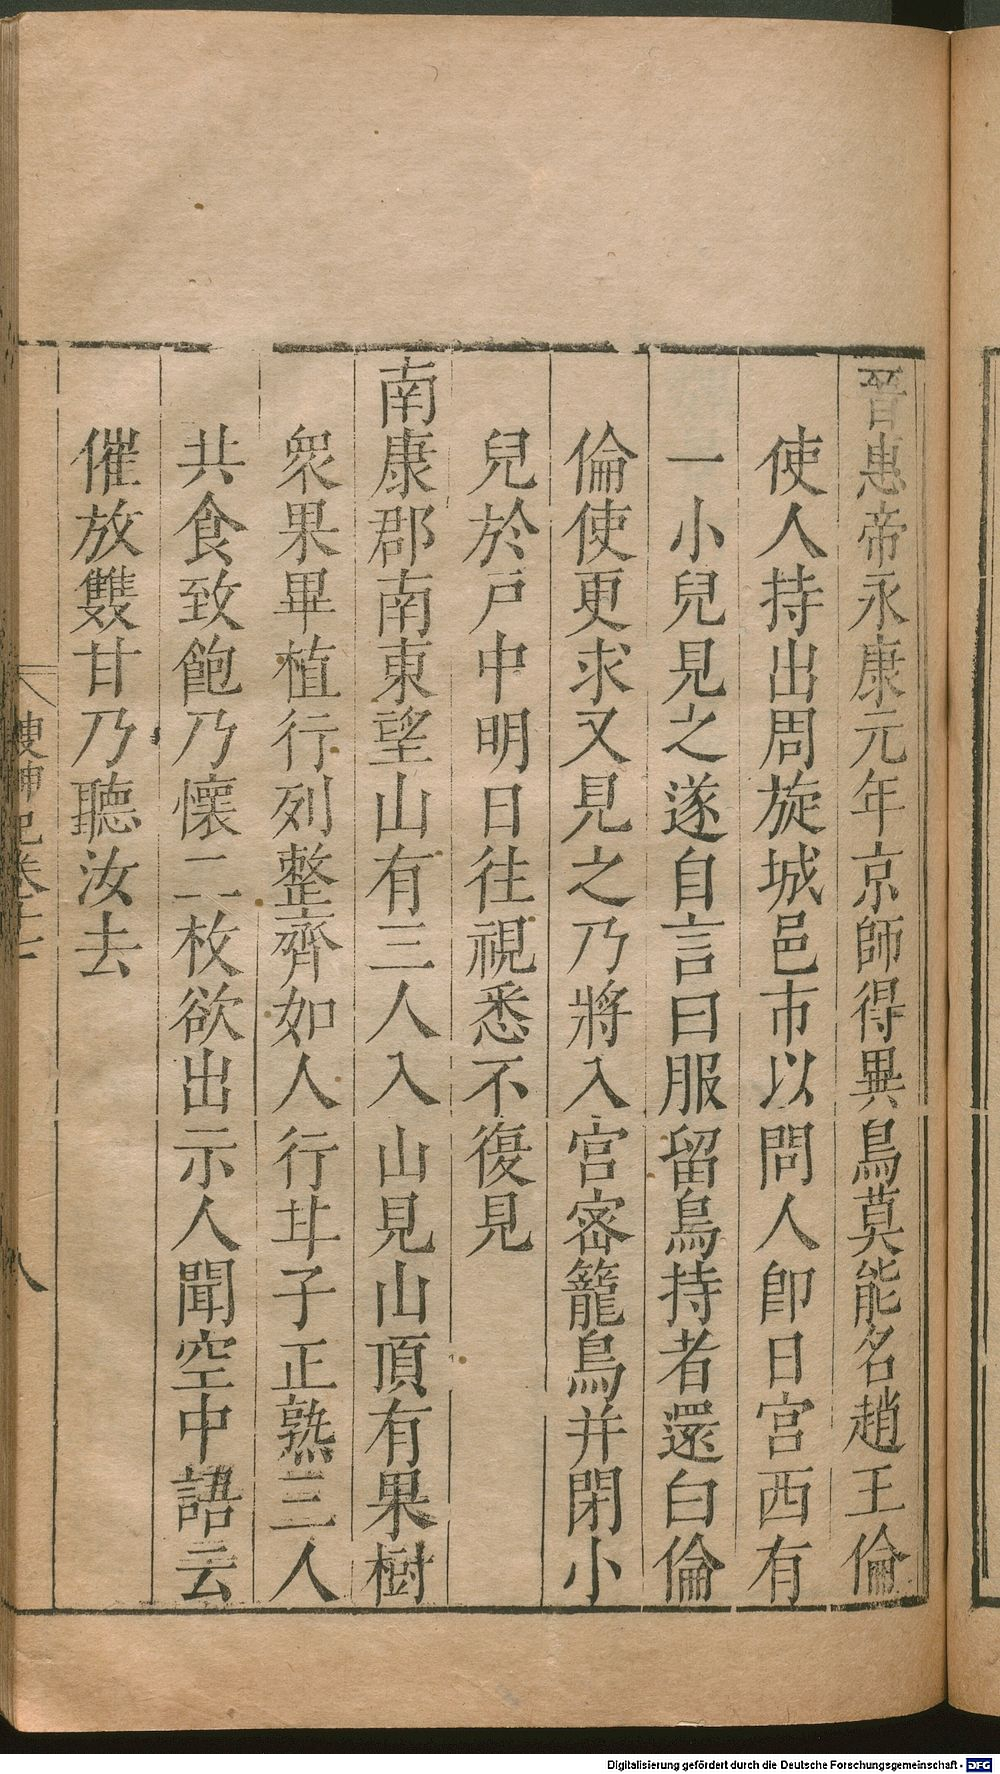 晉惠帝永康元年京師得異鳥莫能名趙王倫
使人持出周旋城邑市以問人卽日宮西有
一小兒見之遂自言曰服留鳥持者還白倫
倫使更求又見之乃將入宮密籠鳥并閉小
兒於戸中明日往視悉不復見
南康郡南東望山有三人入山見山頂有果樹
衆果畢植行列整齊如人行甘子正熟三人
共食致飽乃懷二枚欲出示人聞空中語云
催放雙甘乃聽汝去
搜神記卷十七
八
Digitalisierung gefördert durch die Deutsche Forschungsgemeinschaft - DFG